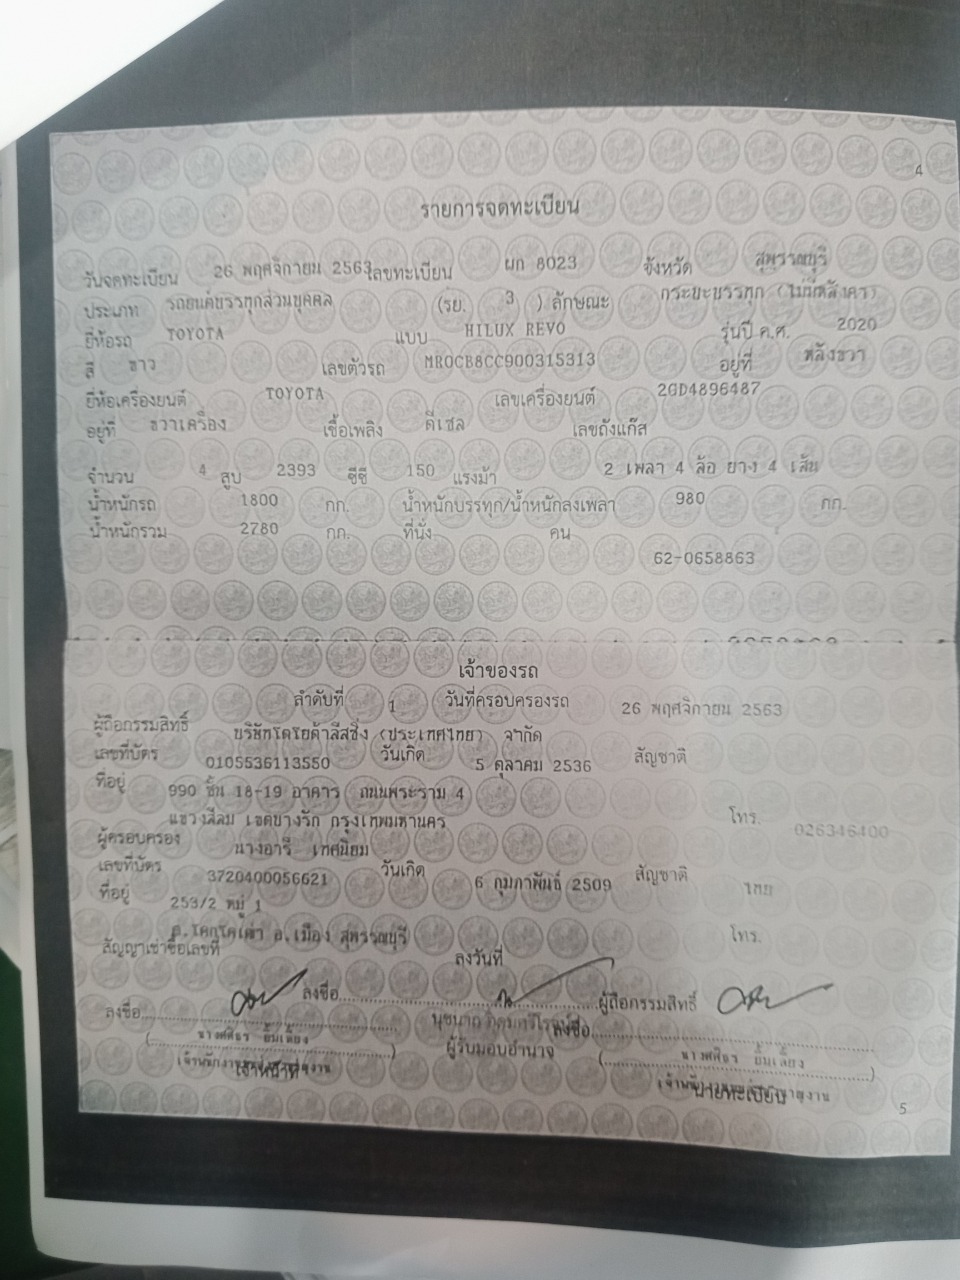 4
รายการจดทะเบียน
วันจดทะเบียน 26 พฤศจิกายน 2563 เลขทะเบียน ผก 8023 จังหวัด สุพรรณบุรี
ประเภท รถยนต์บรรทุกส่วนบุคคล (รย. 3 ) ลักษณะ กระบะบรรทุก (ไม่มีหลังคา)
ยี่ห้อรถ TOYOTA แบบ HILUX REVO รุ่นปี ค.ศ. 2020
สี ขาว เลขตัวรถ MR0CB8CC900315313 อยู่ที่ หลังขวา
ยี่ห้อเครื่องยนต์ TOYOTA เลขเครื่องยนต์ 2GD4896487
อยู่ที่ ขวาเครื่อง เชื้อเพลิง ดีเซล เลขถังแก๊ส
จำนวน 4 สูบ 2393 ซีซี 150 แรงม้า 2 เพลา 4 ล้อ ยาง 4 เส้น
น้ำหนักรถ 1800 กก. น้ำหนักบรรทุก/น้ำหนักลงเพลา 980 กก.
น้ำหนักรวม 2780 กก. ที่นั่ง คน
62-0658863
เจ้าของรถ
ลำดับที่ 1 วันที่ครอบครองรถ 26 พฤศจิกายน 2563
ผู้ถือกรรมสิทธิ์ บริษัทโตโยต้าลีสซิ่ง (ประเทศไทย) จำกัด
เลขที่บัตร 0105536113550 วันเกิด 5 ตุลาคม 2536 สัญชาติ
ที่อยู่ 990 ชั้น 18-19 อาคาร ถนนพระราม 4
แขวงสีลม เขตบางรัก กรุงเทพมหานคร โทร. 026346400
ผู้ครอบครอง นางอารี เทศนิยม
เลขที่บัตร 3720400056621 วันเกิด 6 กุมภาพันธ์ 2509 สัญชาติ ไทย
ที่อยู่ 253/2 หมู่ 1
ต.โคกโคเฒ่า อ.เมือง สุพรรณบุรี โทร.
สัญญาเช่าซื้อเลขที่ ลงวันที่
ลงชื่อ ลงชื่อ ผู้ถือกรรมสิทธิ์
ลงชื่อ
( นางศศิธร ยิ้มเลี้ยง ) ผู้รับมอบอำนาจ ( นางศศิธร ยิ้มเลี้ยง )
เจ้าหน้าที่ นายทะเบียน
5